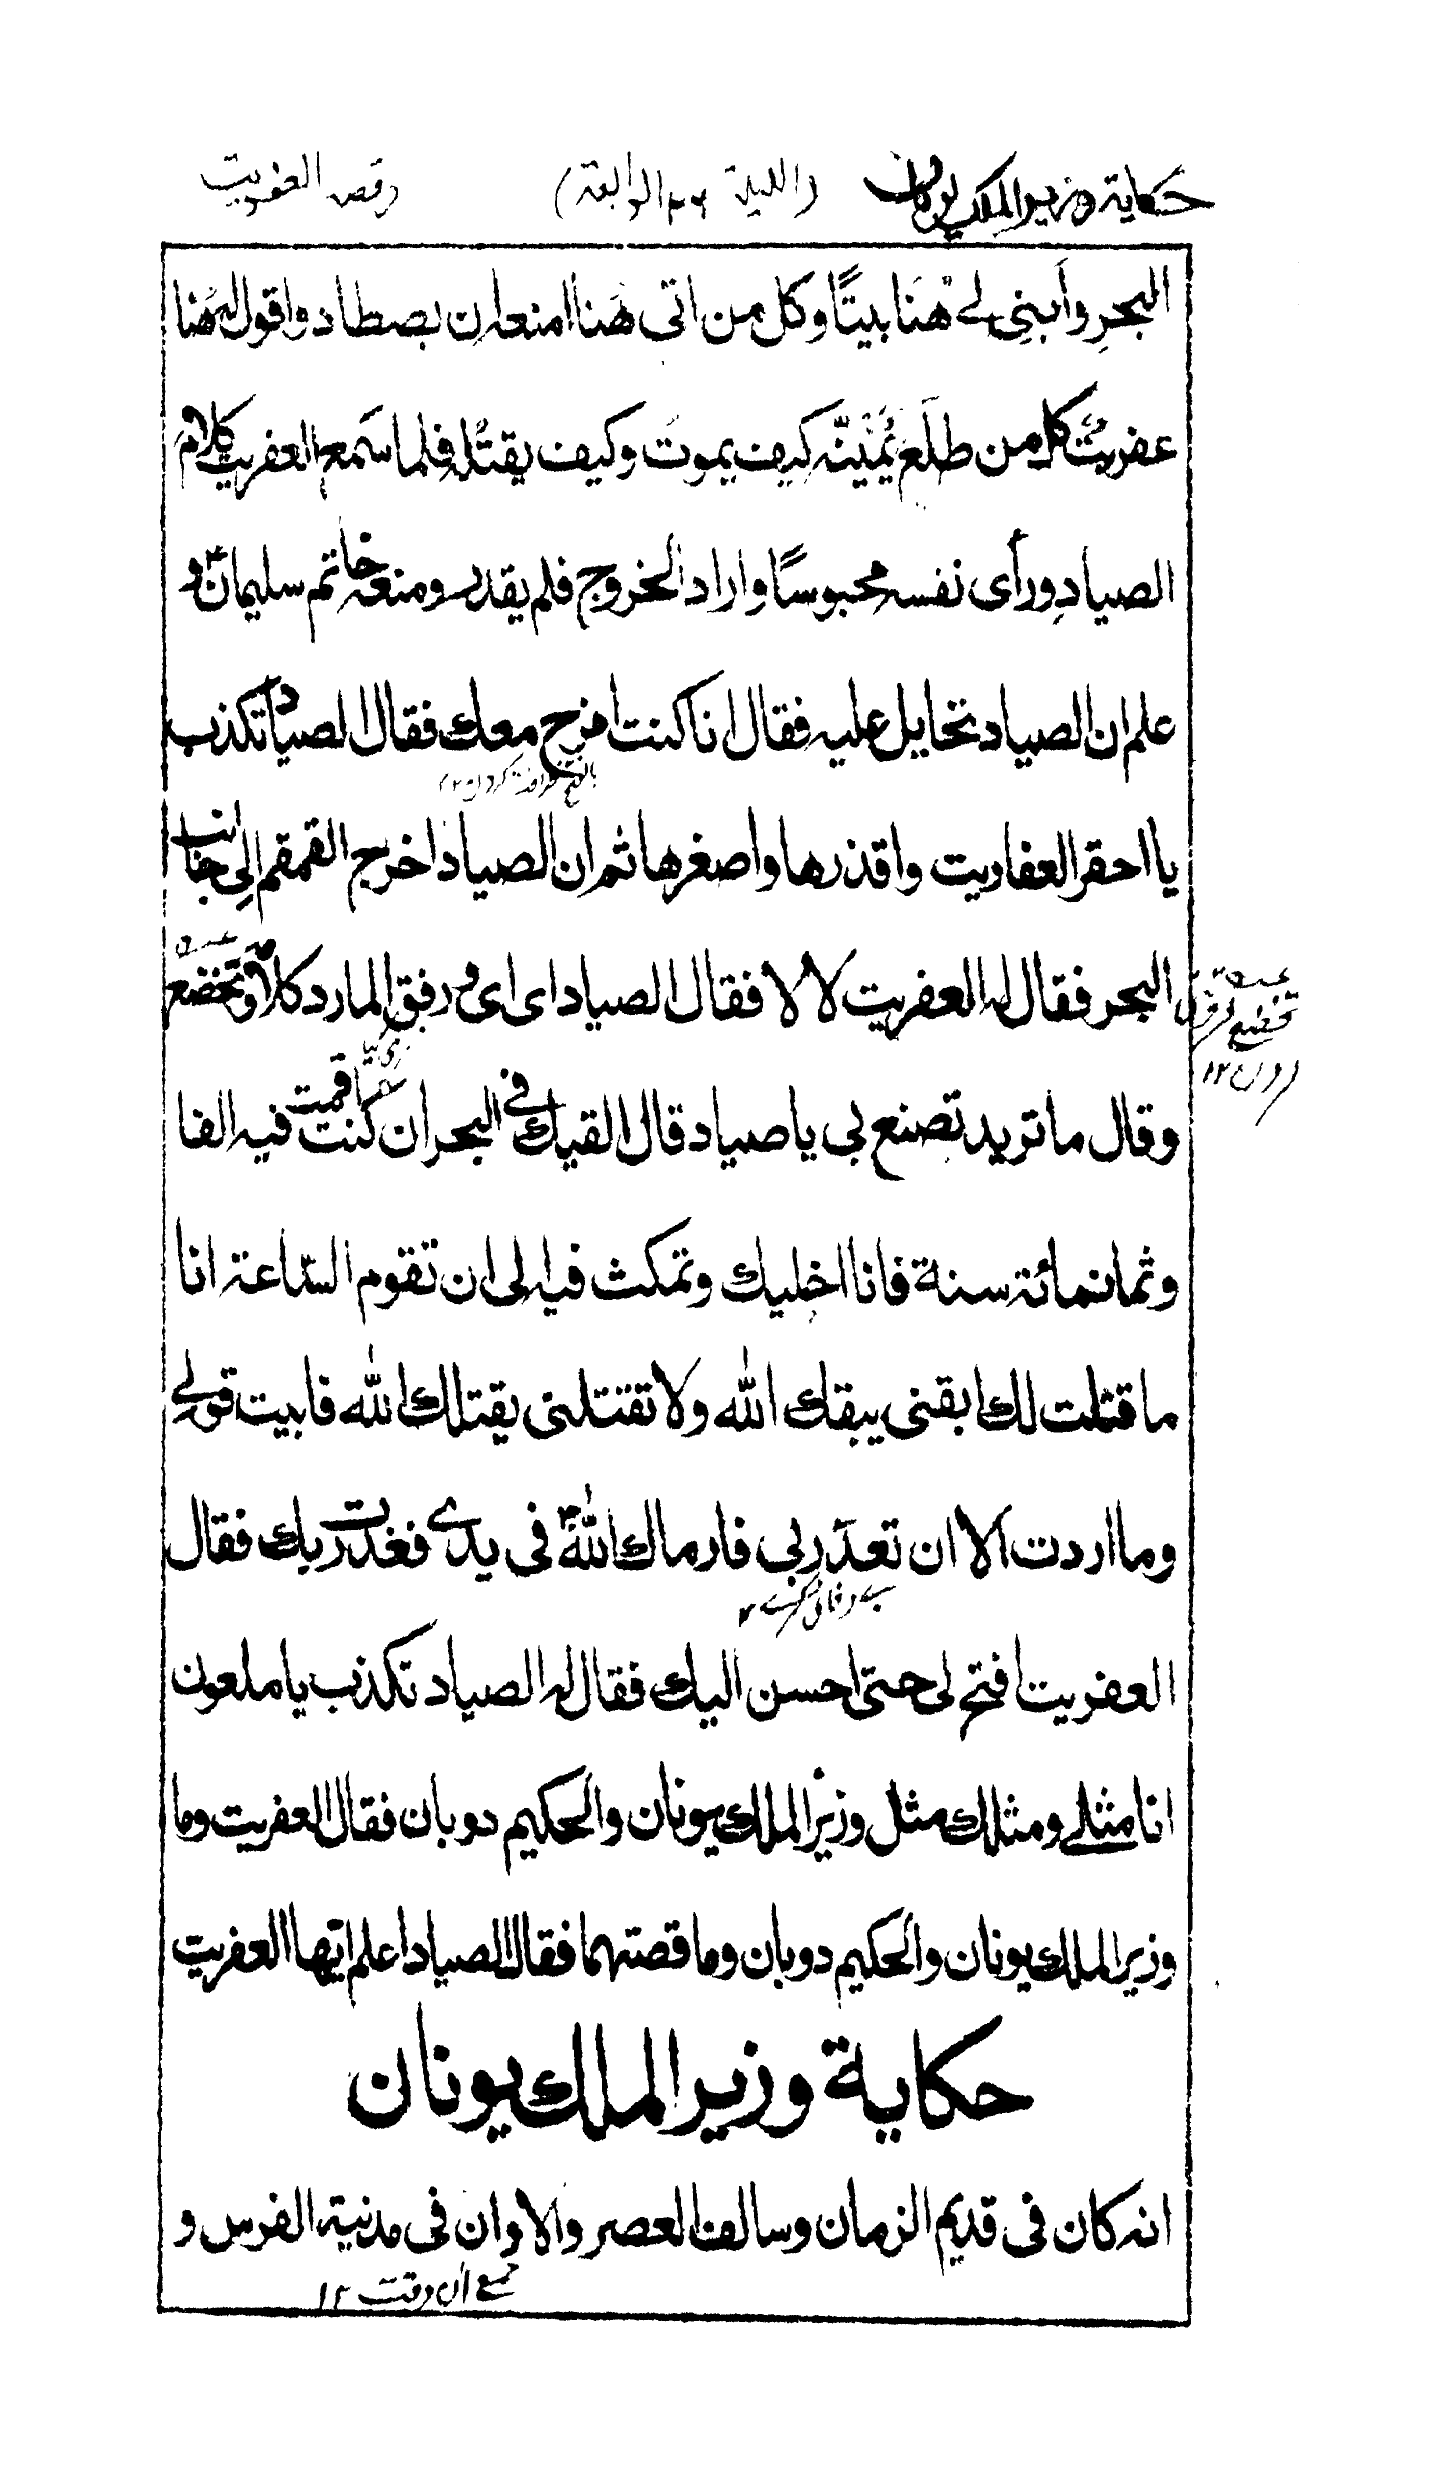 حكاية وزير الملك يونان (الليلة ٤٦ الرابعة) وقصه العفريت
البحرِ وأبنِى لے هُنَا بيتًا وكل من اتى هُنا امنعه ان يصطاد واقول له هُنا
عفريتٌ كل من طلَع يُمَيِّنُه كيف يموت وكيف يقتُله فلما سَمع العفريت كلام
الصيادِ ورأى نفسه محبوسًا واراد الخروج فلم يقدر ومنعه خاتم سليمان و
علم ان الصياد تحايل عليه فقال انا كنت امزح معك فقال الصياد تكذب
يا احقر العفاريت واقذرها واصغرها ثم ان الصياد اخرج القمقم الى جانب
البحر فقال له العفريت لا لا فقال الصياد اى اى ورفق المارد كلامه وتخضع
تخضع فروتنى
كردن ١٢
وقال ما تريد تصنع بى يا صياد قال القيك فى البحر ان كنت اقمت فيه الفا
وثمانمائة سنة فانا اخليك وتمكث فيه الى ان تقوم السّاعة انا
ما قتلت لك ابقنى يبقك الله ولا تقتلنى يقتلك الله فابيت قولے
وما اردت الا ان تغدر بى فارماك اللهُ فى يدے فغدرت بك فقال
العفريت افتح لى حتى احسن اليك فقال له الصياد تكذب يا ملعون
انا مثلے ومثلك مثل وزير الملك يونان والحكيم دوبان فقال العفريت وما
وزير الملك يونان والحكيم دوبان وما قصتهما فقال الصياد اعلم ايها العفريت
حكاية وزير الملك يونان
انه كان فى قديم الزمان وسالف العصر والاوان فى مدينة الفرس و
جمع آن وقت ١٢